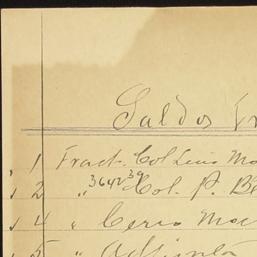 Saldos Tr
1 Fract. Col Luis Mo
2 " 3642 39 Col. P. Be
4 " Cerro Moc
5 " Adjunto